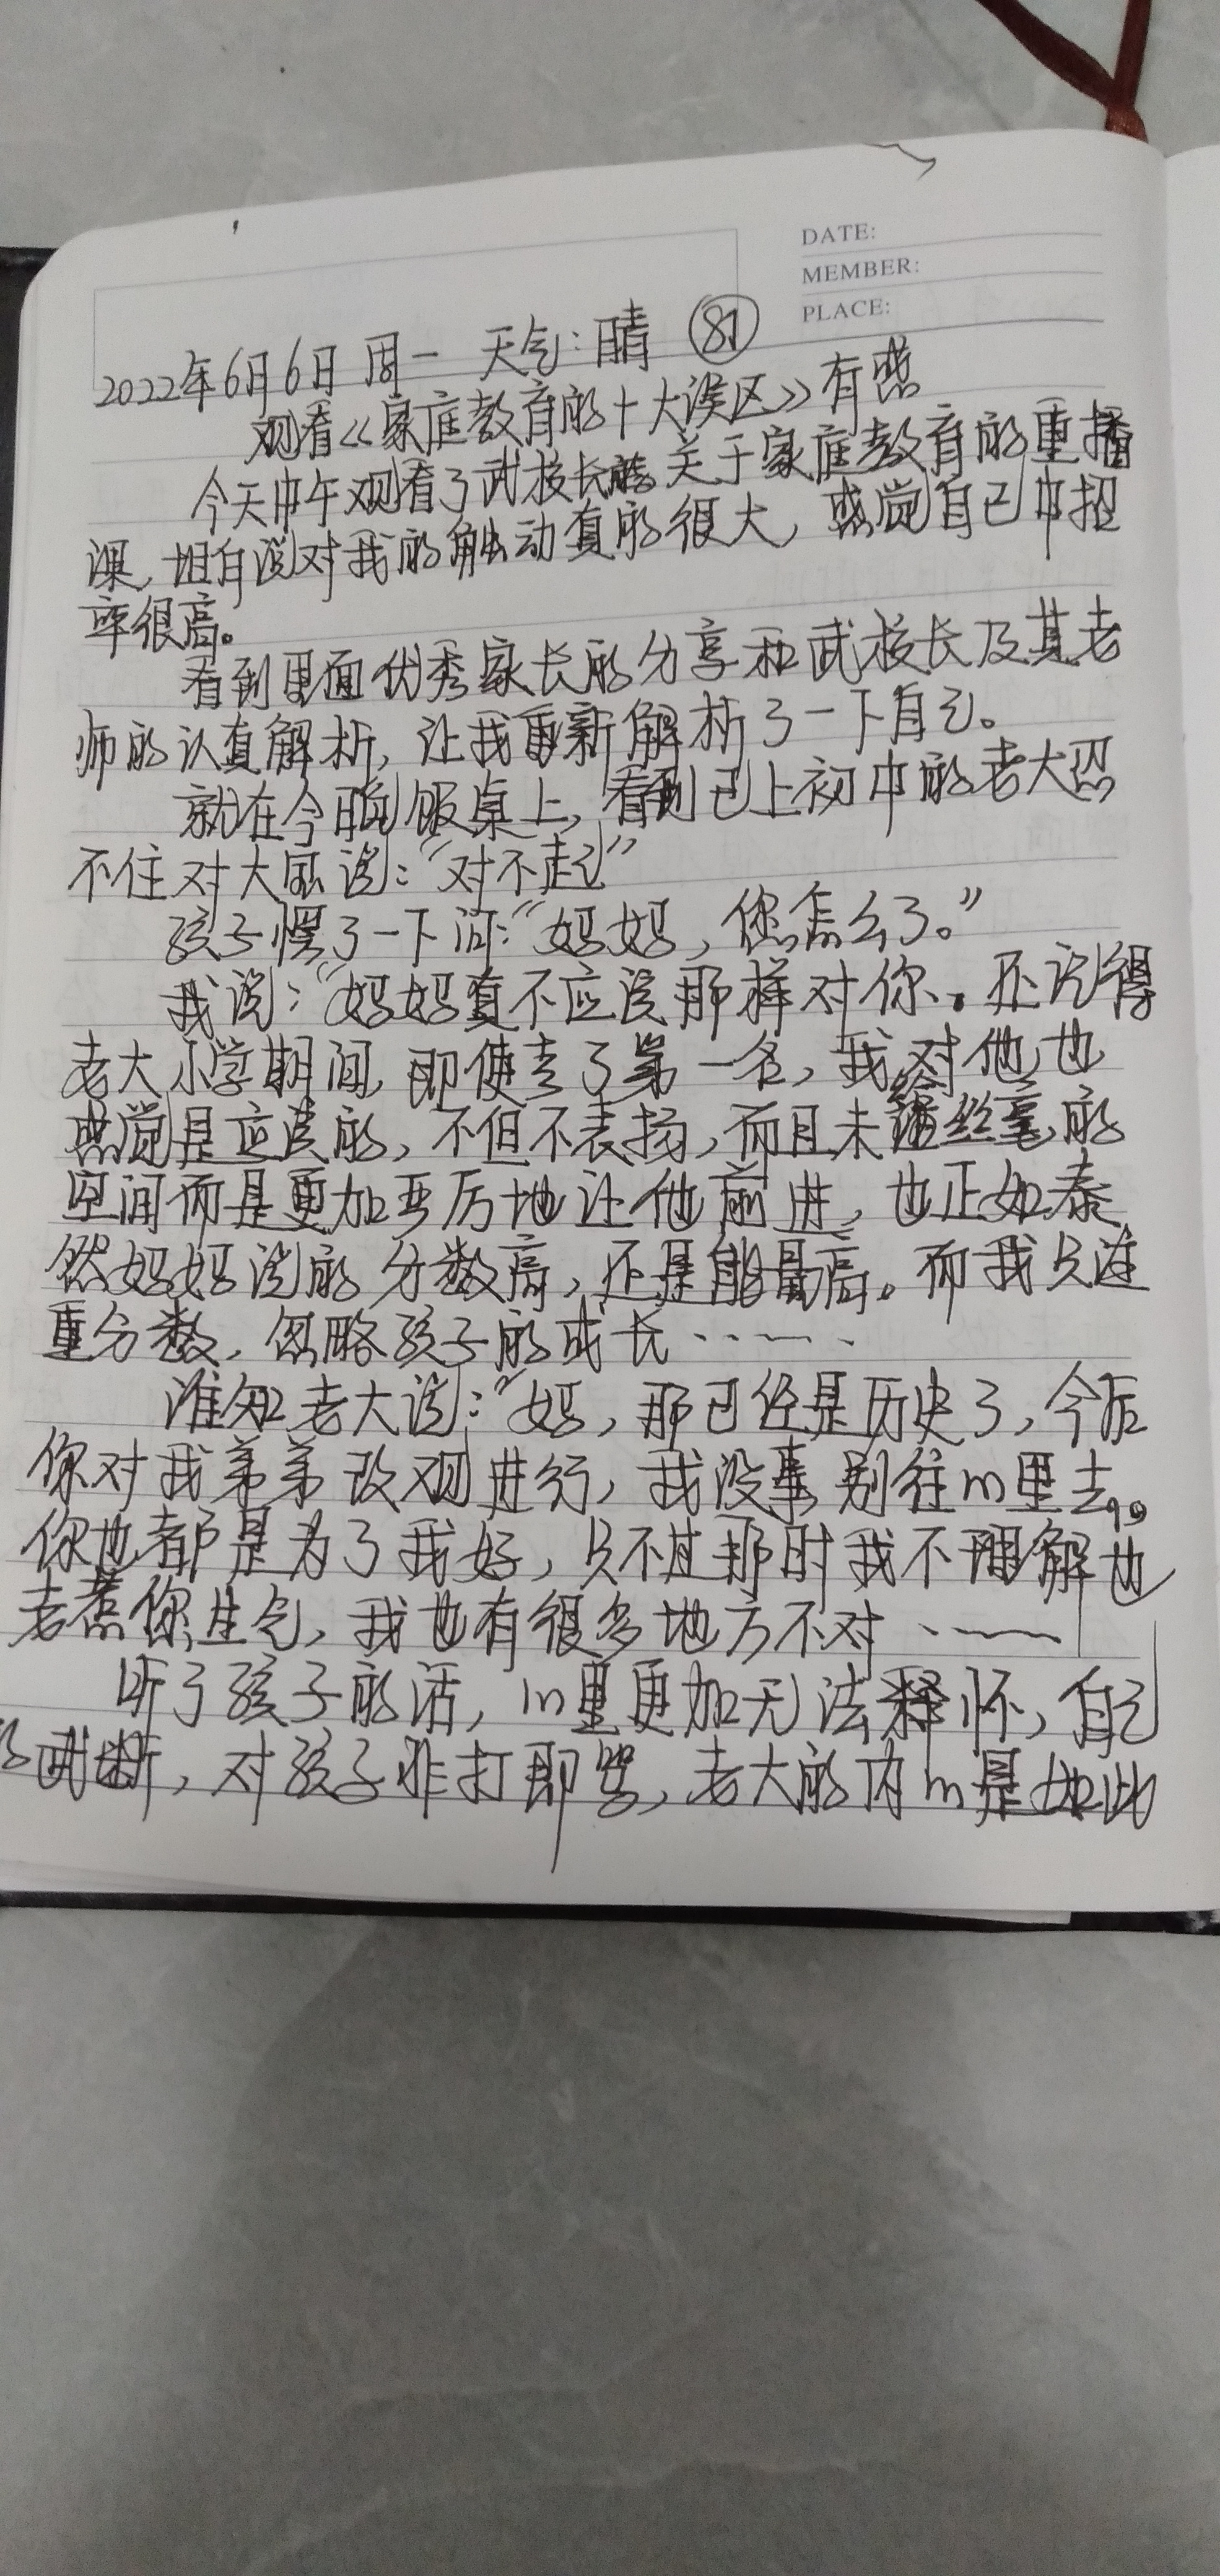 DATE:
MEMBER:
PLACE:
2022年6月6日 周一 天气:晴 81
观看《家庭教育的十大误区》有感
今天中午观看了武校长 关于家庭教育的重播
课,坦白说对我的触动真的很大,感觉自己中招
率很高。
看到里面优秀家长的分享和武校长及其老
师的认真解析,让我重新解析了一下自己。
就在今晚饭桌上,看到已上初中的老大忍
不住对大宝说:“对不起”
孩子愣了一下问:“妈妈,您怎么了。”
我说:“妈妈真不应该那样对你。还记得
老大小学期间,即使考了第一名,我对他也
感觉是应该的,不但不表扬,而且未给丝毫的
空间而是更加严厉地让他前进,也正如泰
然妈妈说的 分数高,还是能量高。而我只注
重分数,忽略孩子的成长……
谁知老大说:“妈,那已经是历史了,今后
你对我弟弟改观进行,我没事别往心里去。”
你也都是为了我好,只不过那时我不理解也
老惹你生气,我也有很多地方不对……
听了孩子的话,心里更加无法释怀,自己
武断,对孩子非打即骂,老大的内心是如此